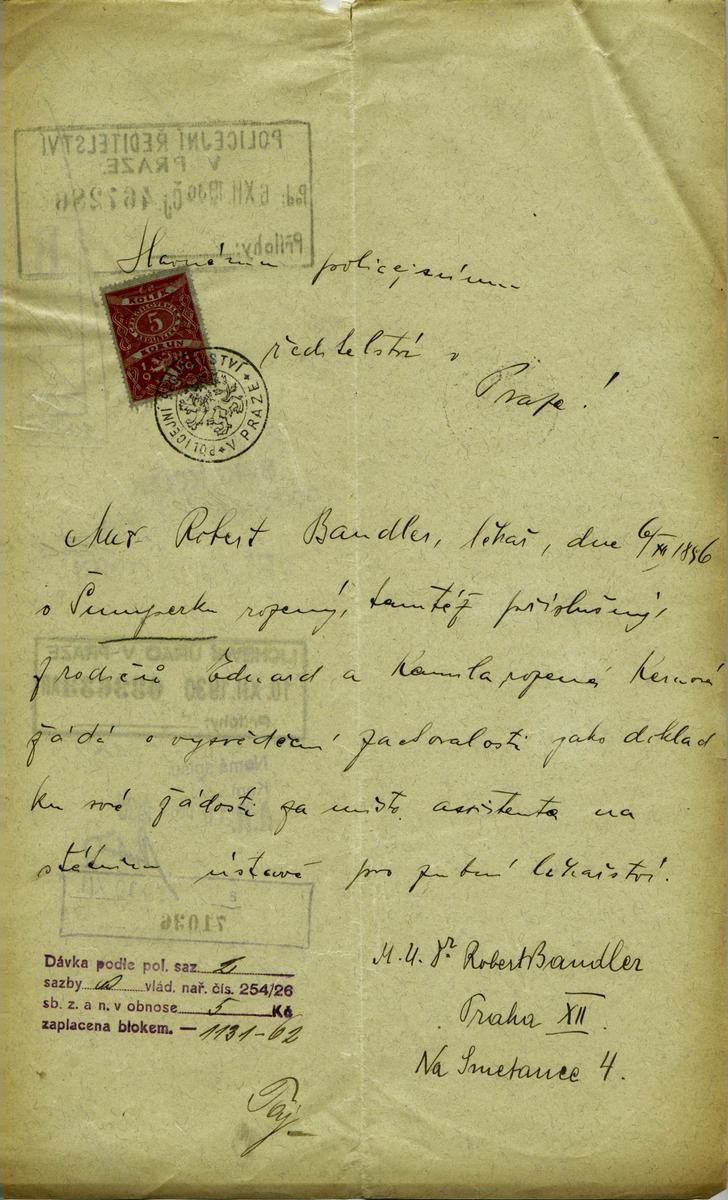 POLICEJNÍ ŘEDITELSTVÍ
V PRAZE.
Pod: 6 XII. 1930 Čj 467286
Přílohy:
Slavnému policejnímu
KOLEK
5
KORUN
POLICEJNÍ ŘEDITELSTVÍ V PRAZE
ředitelství v
Praze!
Robert Bandler, lékař, dne 6/XII 1896
v Šumperku rozený, tamtéž příslušný,
z rodičů Eduard a Kamila rozená
žádá o vysvědčení zachovalosti jako doklad
ku své žádosti za místo assistenta na
státním ústavě pro zubní lékařství.
10. XII. 1930
Přílohy:
71036
Dávka podle pol. saz. 2
sazby vlád. nař. čís. 254/26
sb. z. a n. v obnose 5 Kč
zaplacena blokem. — 1131-62
M.U.Dr Robert Bandler
Praha XII.
Na Smetance 4.